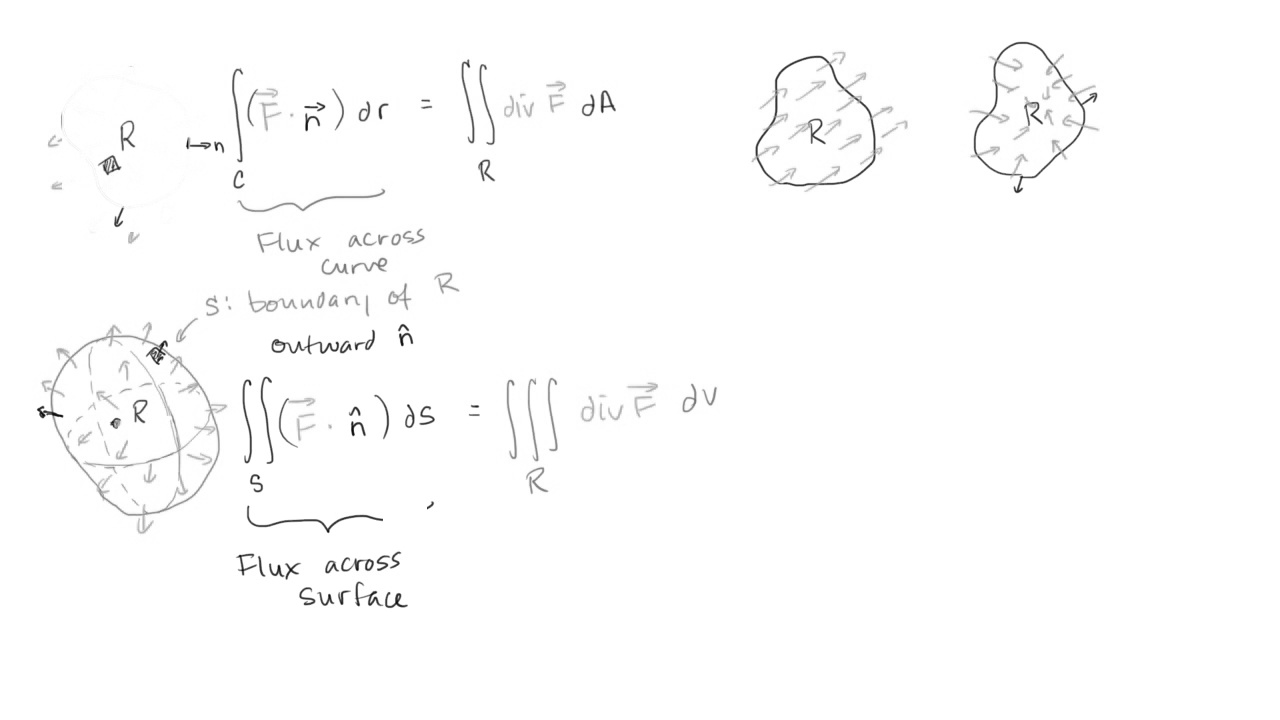 R
→n
∫_C (F⃗ · n⃗) dr = ∬_R div F⃗ dA
Flux across
curve
R
R
S: boundary of R
outward n̂
R
∬_S (F⃗ · n̂) dS = ∭_R div F⃗ dV
Flux across
surface